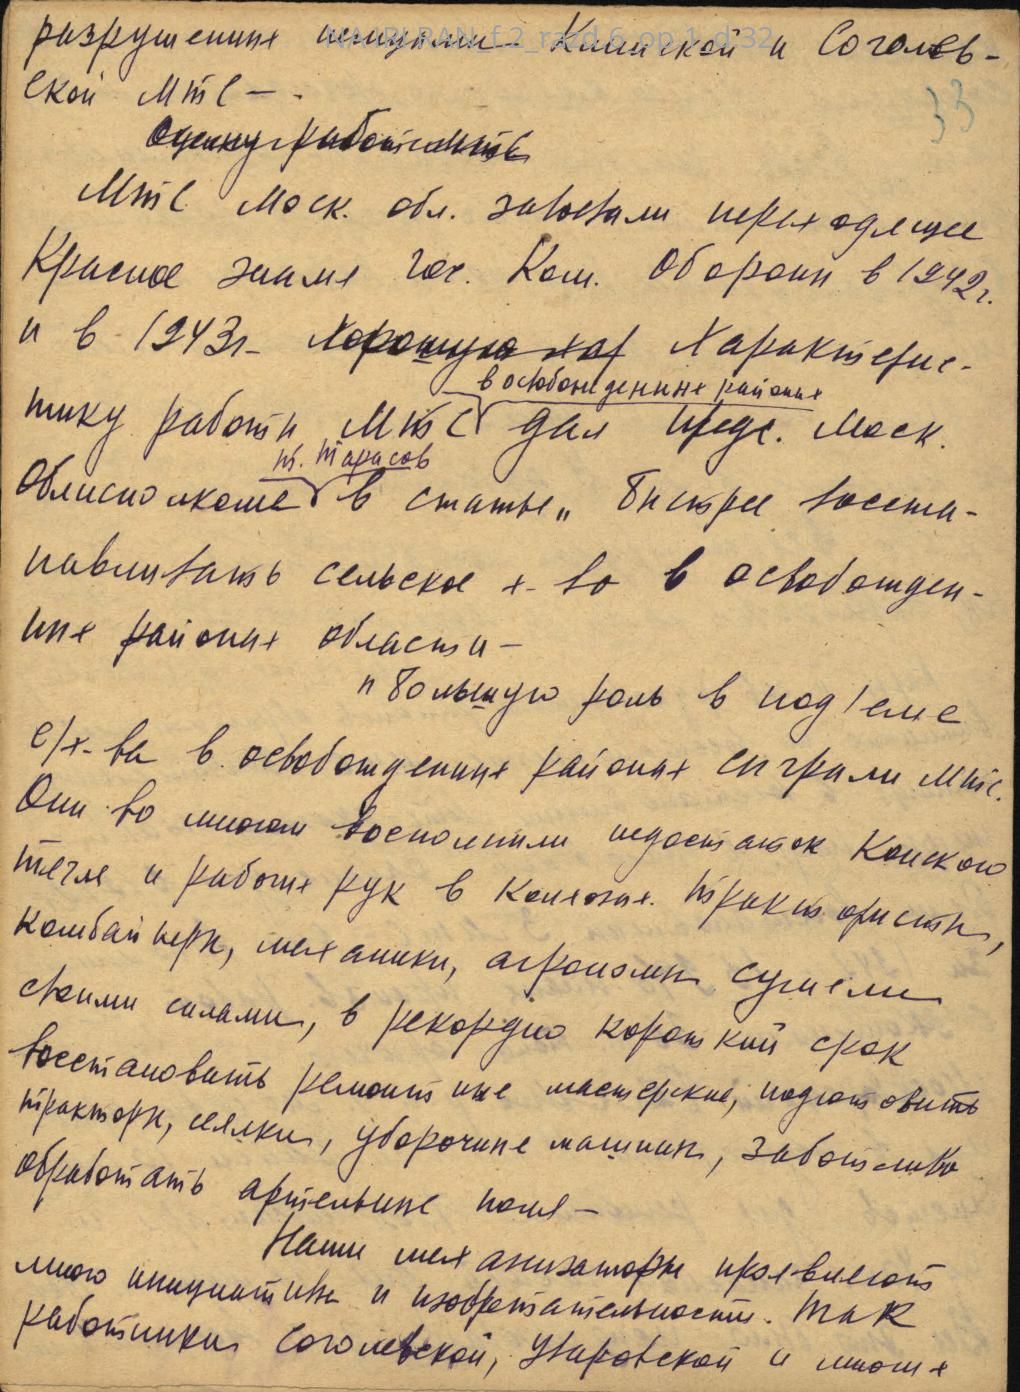 разрушенных немцами Клинской и Соголев-
ской МТС —.
33
Оценку работе МТС
МТС Моск. обл. завоевали переходящее
Красное знамя Гос. Ком. Обороны в 1942 г.
и в 1943 г. Хорошую хар Характерис-
в освобожденных районах
тику работы МТС дал Предс. Моск.
т. Тарасов
Облисполкома в статье „Быстрее восста-
навливать сельское х-во в освобожден-
ных районах области —
"Большую роль в под'еме
с/х-ва в освобожденных районах сыграли МТС.
Они во многом восполнили недостаток конского
тягла и рабочих рук в колхозах. Трактористы,
комбайнеры, механики, агрономы сумели
своими силами, в рекордно короткий срок
восстановить ремонтные мастерские, подготовить
тракторы, сеялки, уборочные машины, заботливо
обработать артельные поля —
Наши механизаторы проявляют
много инициативы и изобретательности. Так
работники Соголевской, Уваровской и многих
NA IRI RAN_f.2_razd.6_op.1_d.32